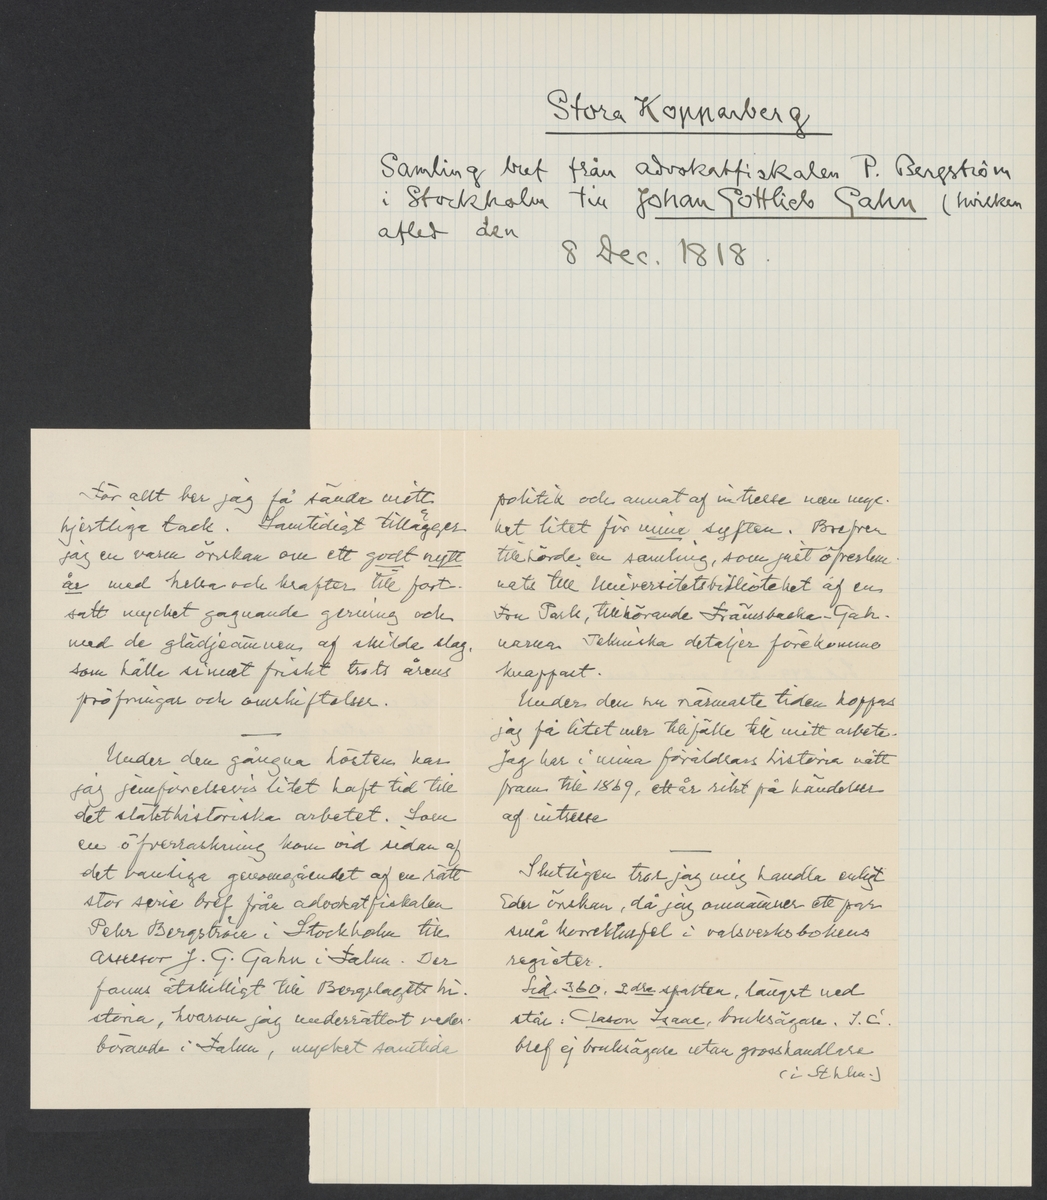 Stora Kopparberg
Samling bref från advokatfiskalen P. Bergström
i Stockholm till Johan Gottlieb Gahn (hvilken
afled den
8 Dec. 1818.
För allt ber jag få sända mitt
hjertliga tack. Samtidigt tillägger
jag en varm önskan om ett godt nytt
år med helsa och krafter till fort-
satt mycket gagnande gerning och
med de glädjeämnen af skilda slag,
som hålla sinnet friskt trots årens
pröfningar och omskiftelser.
Under den gångna hösten har
jag jemförelsevis litet haft tid till
det släkthistoriska arbetet. Som
en öfverraskning kom vid sidan af
det vanliga genomgåendet af en rätt
stor serie bref från advokatfiskalen
Pehr Bergström i Stockholm till
assessor J. G. Gahn i Falun. Der
fanns åtskilligt till Bergslagets hi-
storia, hvarom jag underrättat veder-
börande i Falun, mycket samtida
politik och annat af intresse men myc-
ket litet för mina syften. Brefven
tillhörde en samling, som just öfverlem-
nats till Universitetsbiblioteket af en
Fru Park, tillhörande Främsbacka-Gah-
narna. Tekniska detaljer förekommo
knappast.
Under den nu närmaste tiden hoppas
jag få litet mer tillfälle till mitt arbete.
Jag har i mina föräldrars historia nått
fram till 1869, ett år rikt på händelser
af intresse
Slutligen tror jag mig handla enligt
Eder önskan, då jag omnämner ett par
små korrekturfel i valsverksboken
register.
Sid. 360, 2dra spalten, längst ned
står: Clason Isaac, bruksägare. I.C.
blef ej bruksägare utan grosshandlare
(i Sthlm.)